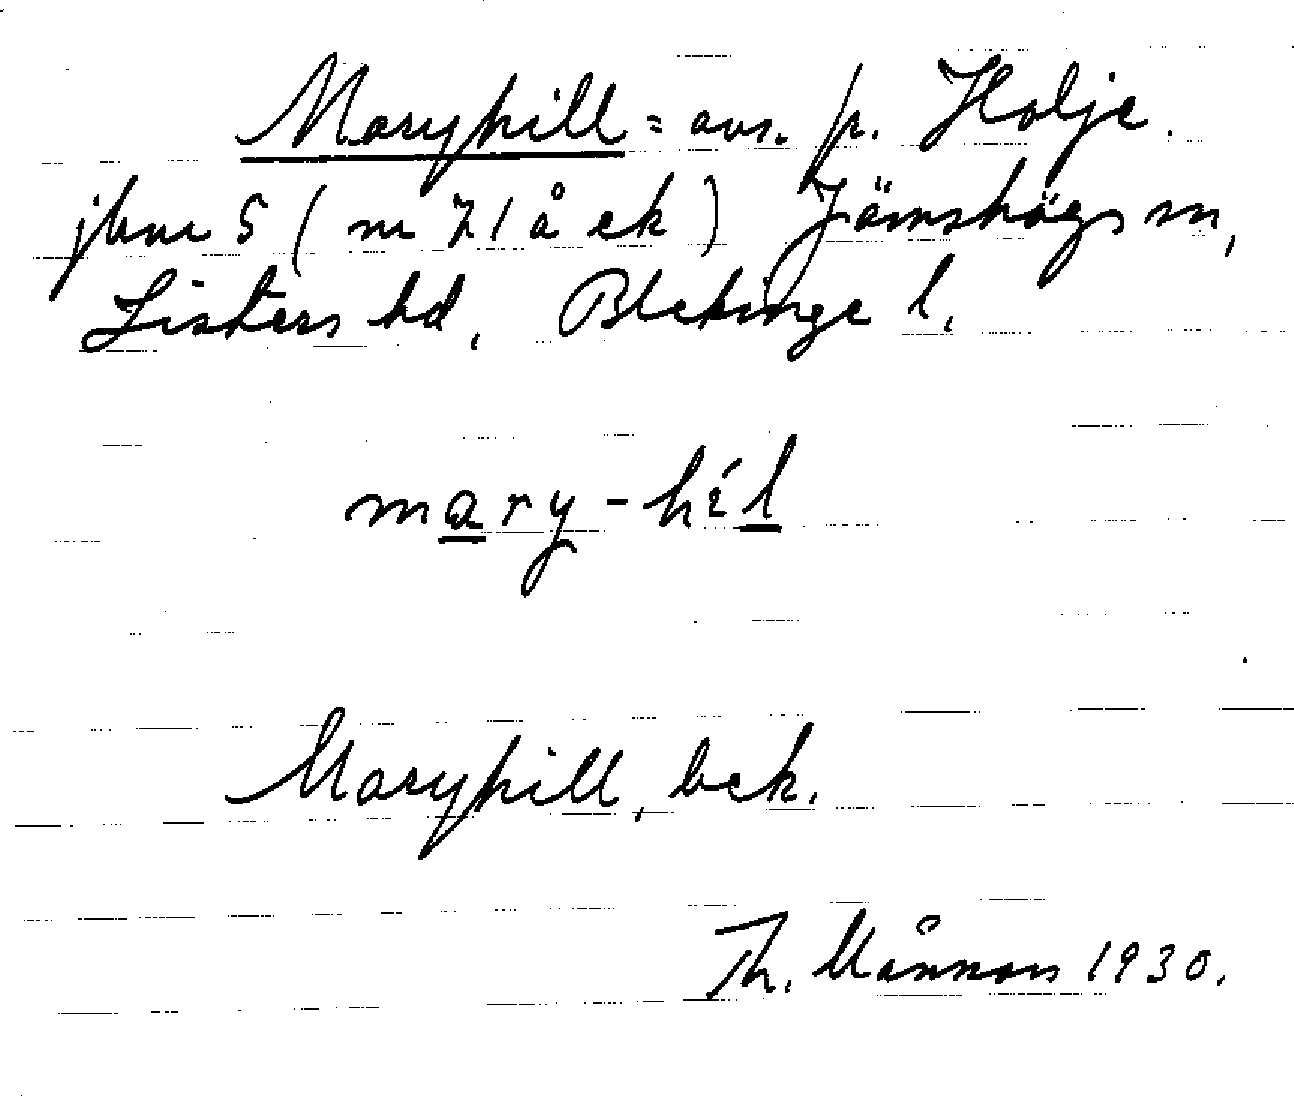 Maryhill = avs. fr. Holje
jbnr 5 (nr 71 å ek) Jämshögs sn,
Listers hd, Blekinge l.
mary-híl
Maryhill, bek.
Th. Månson 1930.